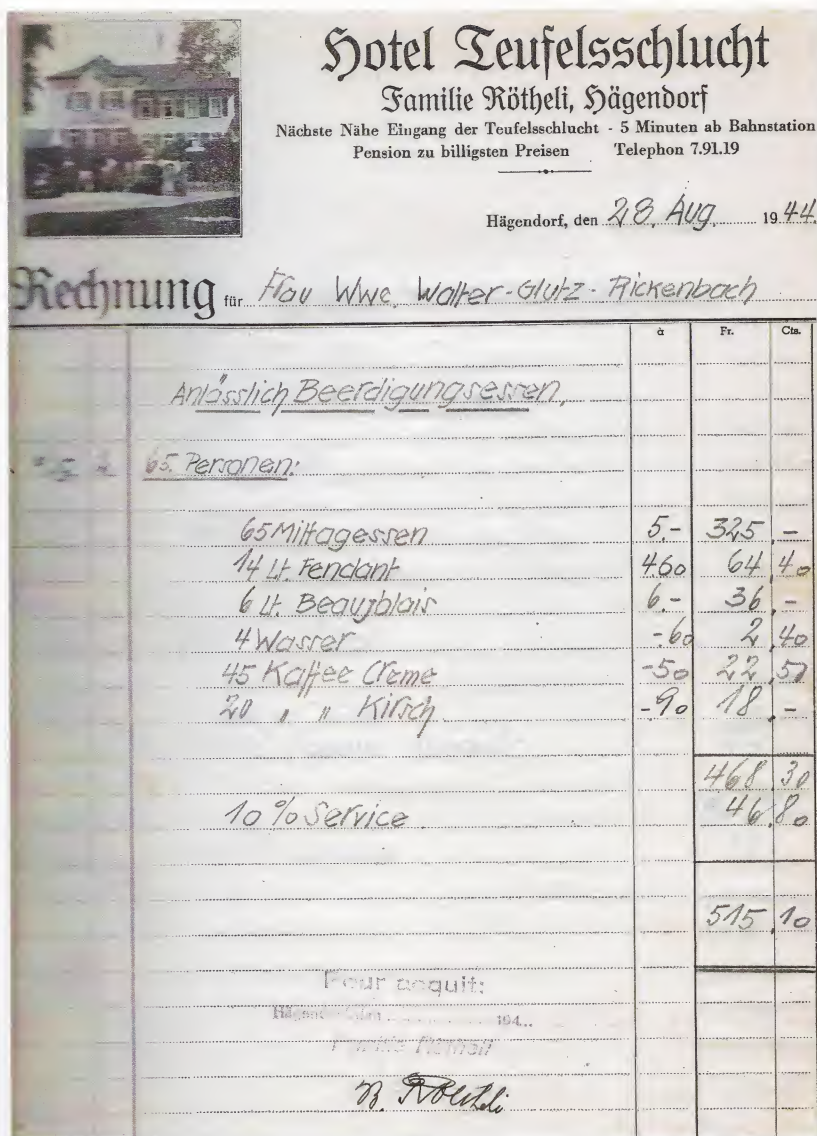 Hotel Teufelsschlucht
Familie Rötheli, Hägendorf
Nächste Nähe Eingang der Teufelsschlucht - 5 Minuten ab Bahnstation
Pension zu billigsten Preisen Telephon 7.91.19
Hägendorf, den 28. Aug. 1944.
Rechnung für Frau Wwe. Walter-Glutz-Rickenbach
à Fr. Cts.
Anlässlich Beerdigungsessen,
65 Personen:
65 Mittagessen 5.- 325,-
14 Lt. Fendant 4.60 64,40
6 Lt. Beaujolais 6.- 36,-
4 Wasser -.60 2,40
45 Kaffee Creme -50 22,50
20 " " Kirsch -.90 18,-
468,30
10 % Service 46,80
515,10
Pour acquit:
194...
B. Rötheli